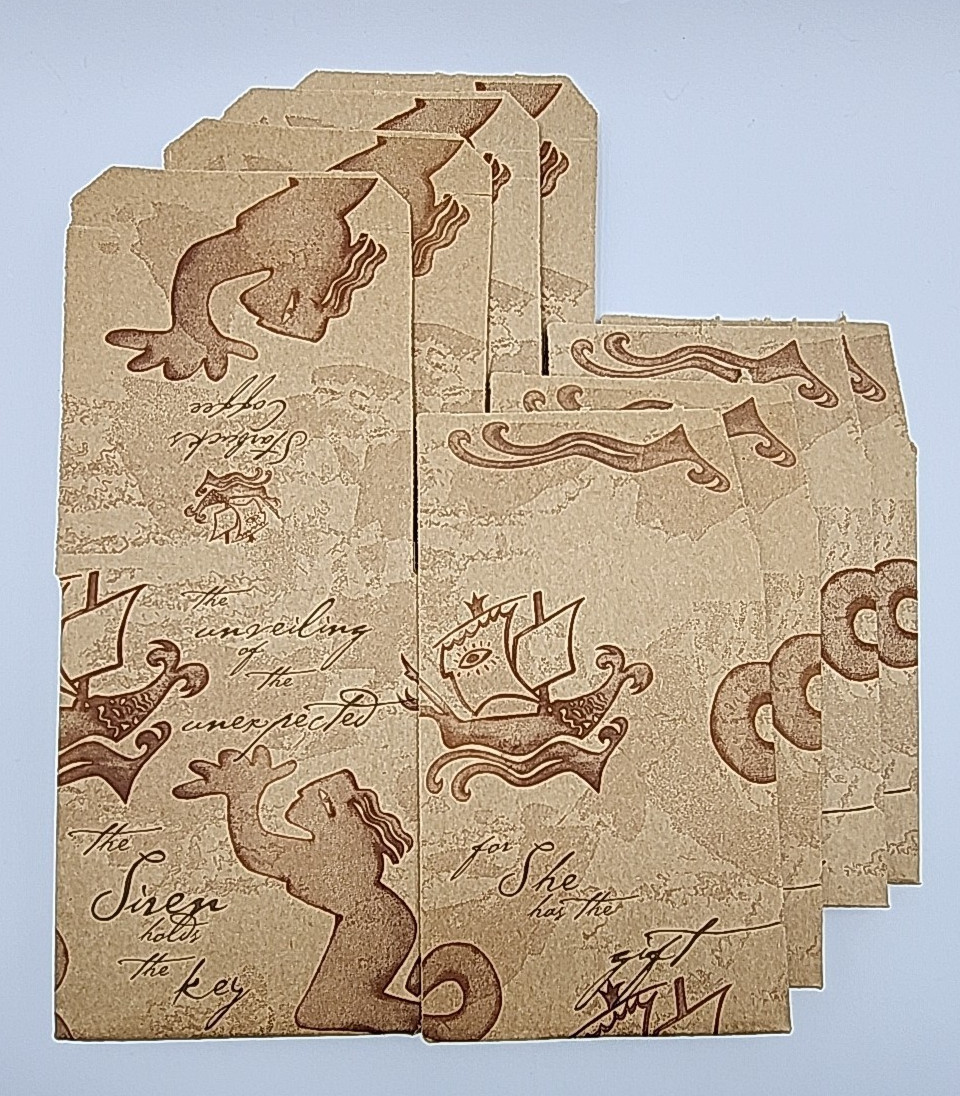 Starbucks
Coffee
the
unveiling
of
the
unexpected
the
Siren
holds
the key
for
She
has the
gift